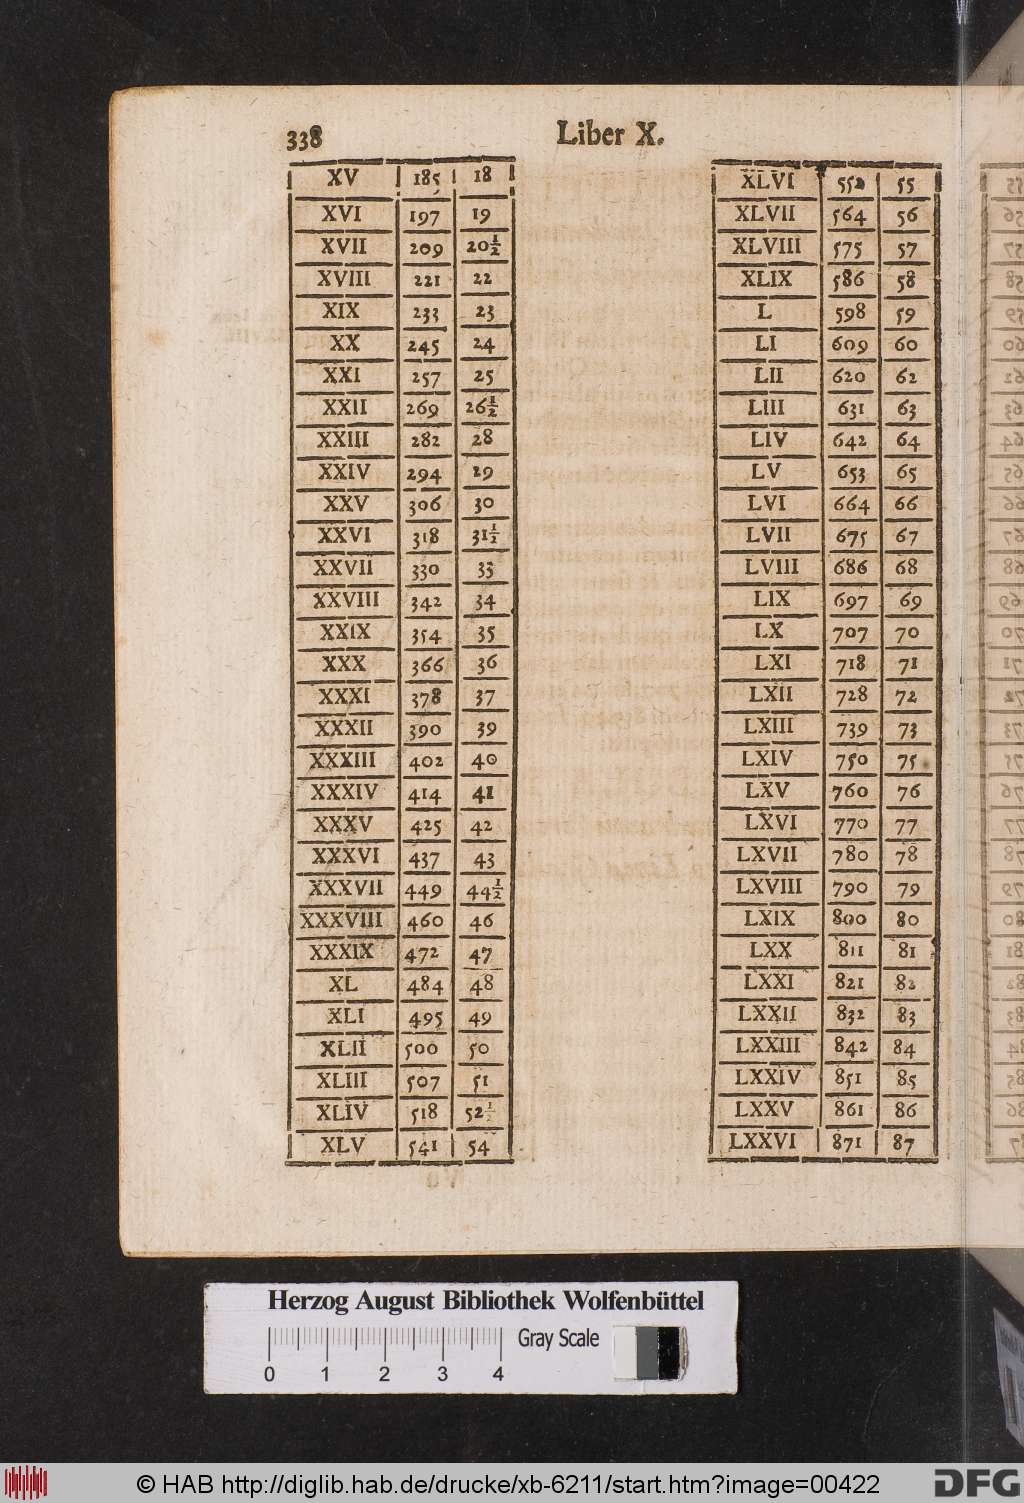 338 Liber X.
XV 185 18
XVI 197 19
XVII 209 20½
XVIII 221 22
XIX 233 23
XX 245 24
XXI 257 25
XXII 269 26½
XXIII 282 28
XXIV 294 29
XXV 306 30
XXVI 318 31½
XXVII 330 33
XXVIII 342 34
XXIX 354 35
XXX 366 36
XXXI 378 37
XXXII 390 39
XXXIII 402 40
XXXIV 414 41
XXXV 425 42
XXXVI 437 43
XXXVII 449 44½
XXXVIII 460 46
XXXIX 472 47
XL 484 48
XLI 495 49
XLII 500 50
XLIII 507 51
XLIV 518 52½
XLV 541 54
XLVI 552 55
XLVII 564 56
XLVIII 575 57
XLIX 586 58
L 598 59
LI 609 60
LII 620 62
LIII 631 63
LIV 642 64
LV 653 65
LVI 664 66
LVII 675 67
LVIII 686 68
LIX 697 69
LX 707 70
LXI 718 71
LXII 728 72
LXIII 739 73
LXIV 750 75
LXV 760 76
LXVI 770 77
LXVII 780 78
LXVIII 790 79
LXIX 800 80
LXX 811 81
LXXI 821 82
LXXII 832 83
LXXIII 842 84
LXXIV 851 85
LXXV 861 86
LXXVI 871 87
Herzog August Bibliothek Wolfenbüttel
Gray Scale
0 1 2 3 4
© HAB http://diglib.hab.de/drucke/xb-6211/start.htm?image=00422
DFG